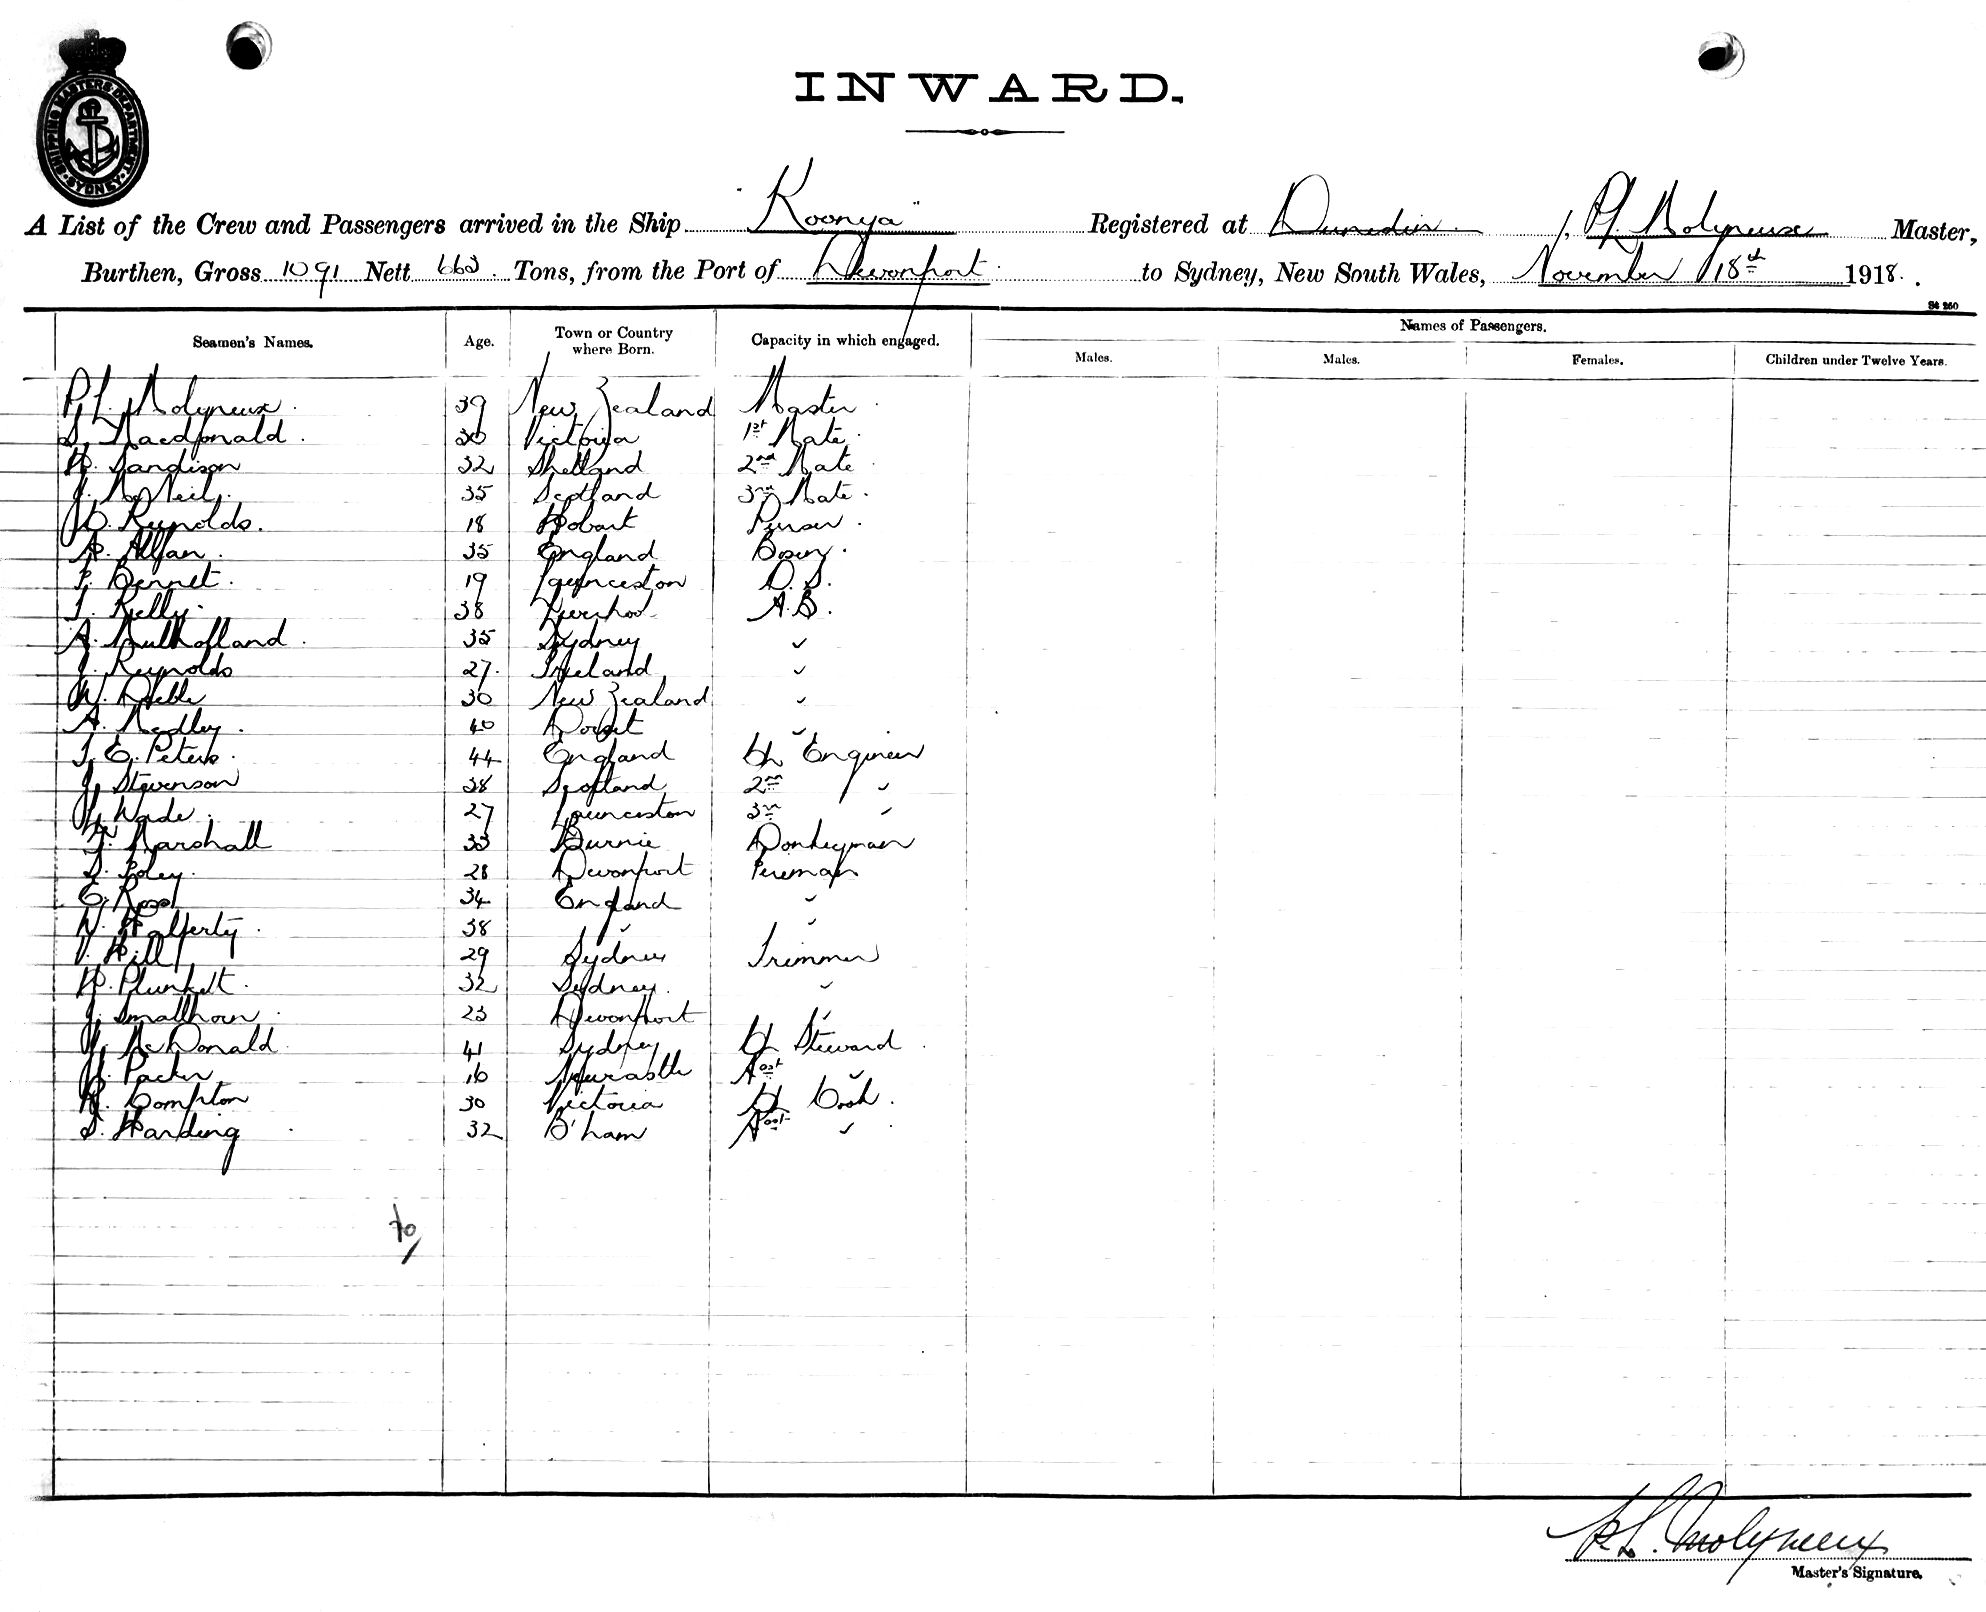 SHIPPING MASTERS DEPARTMENT SYDNEY
INWARD.
A List of the Crew and Passengers arrived in the Ship "Koonya" Registered at Dunedin, P.L. Molyneux Master,
Burthen, Gross 1091 Nett 663 Tons, from the Port of Devonport to Sydney, New South Wales, November 18th 1918.
S4 250
Seamen's Names. Age. Town or Country where Born. Capacity in which engaged. Names of Passengers.
Males. Males. Females. Children under Twelve Years.
P.L. Molyneux. 39 New Zealand Master
S. Macdonald. 30 Victoria 1st Mate.
Sandison 32 Shetland 2nd Mate
J. McNeil. 35 Scotland 3rd Mate.
Reynolds. 18 Hobart Purser.
Allan. 35 England Bosun.
Bennet. 19 Launceston O.S.
Kelly. 38 Liverpool A.B.
A. Mulholland. 35 Sydney "
J. Reynolds 27. Ireland "
W. 30 New Zealand "
A. Medley. 40 Dorset "
E. Peters. 44 England Ch Engineer
J. Stevenson 38 Scotland 2nd "
Wade. 27 Launceston 3rd "
Marshall 33 Burnie Donkeyman
Foley. 28 Devonport Fireman
E. Ross 34 England "
Hafferty. 38 " "
Hill 29 Sydney Trimmer
Plunkett. 32 Sydney. "
J. Smallhorn 23 Devonport "
McDonald. 41 Sydney Ch Steward.
Packer 16 Newcastle Asst "
Compton 30 Victoria Ch Cook.
S. Harding 32 B'ham Asst "
P.L. Molyneux
Master's Signature.